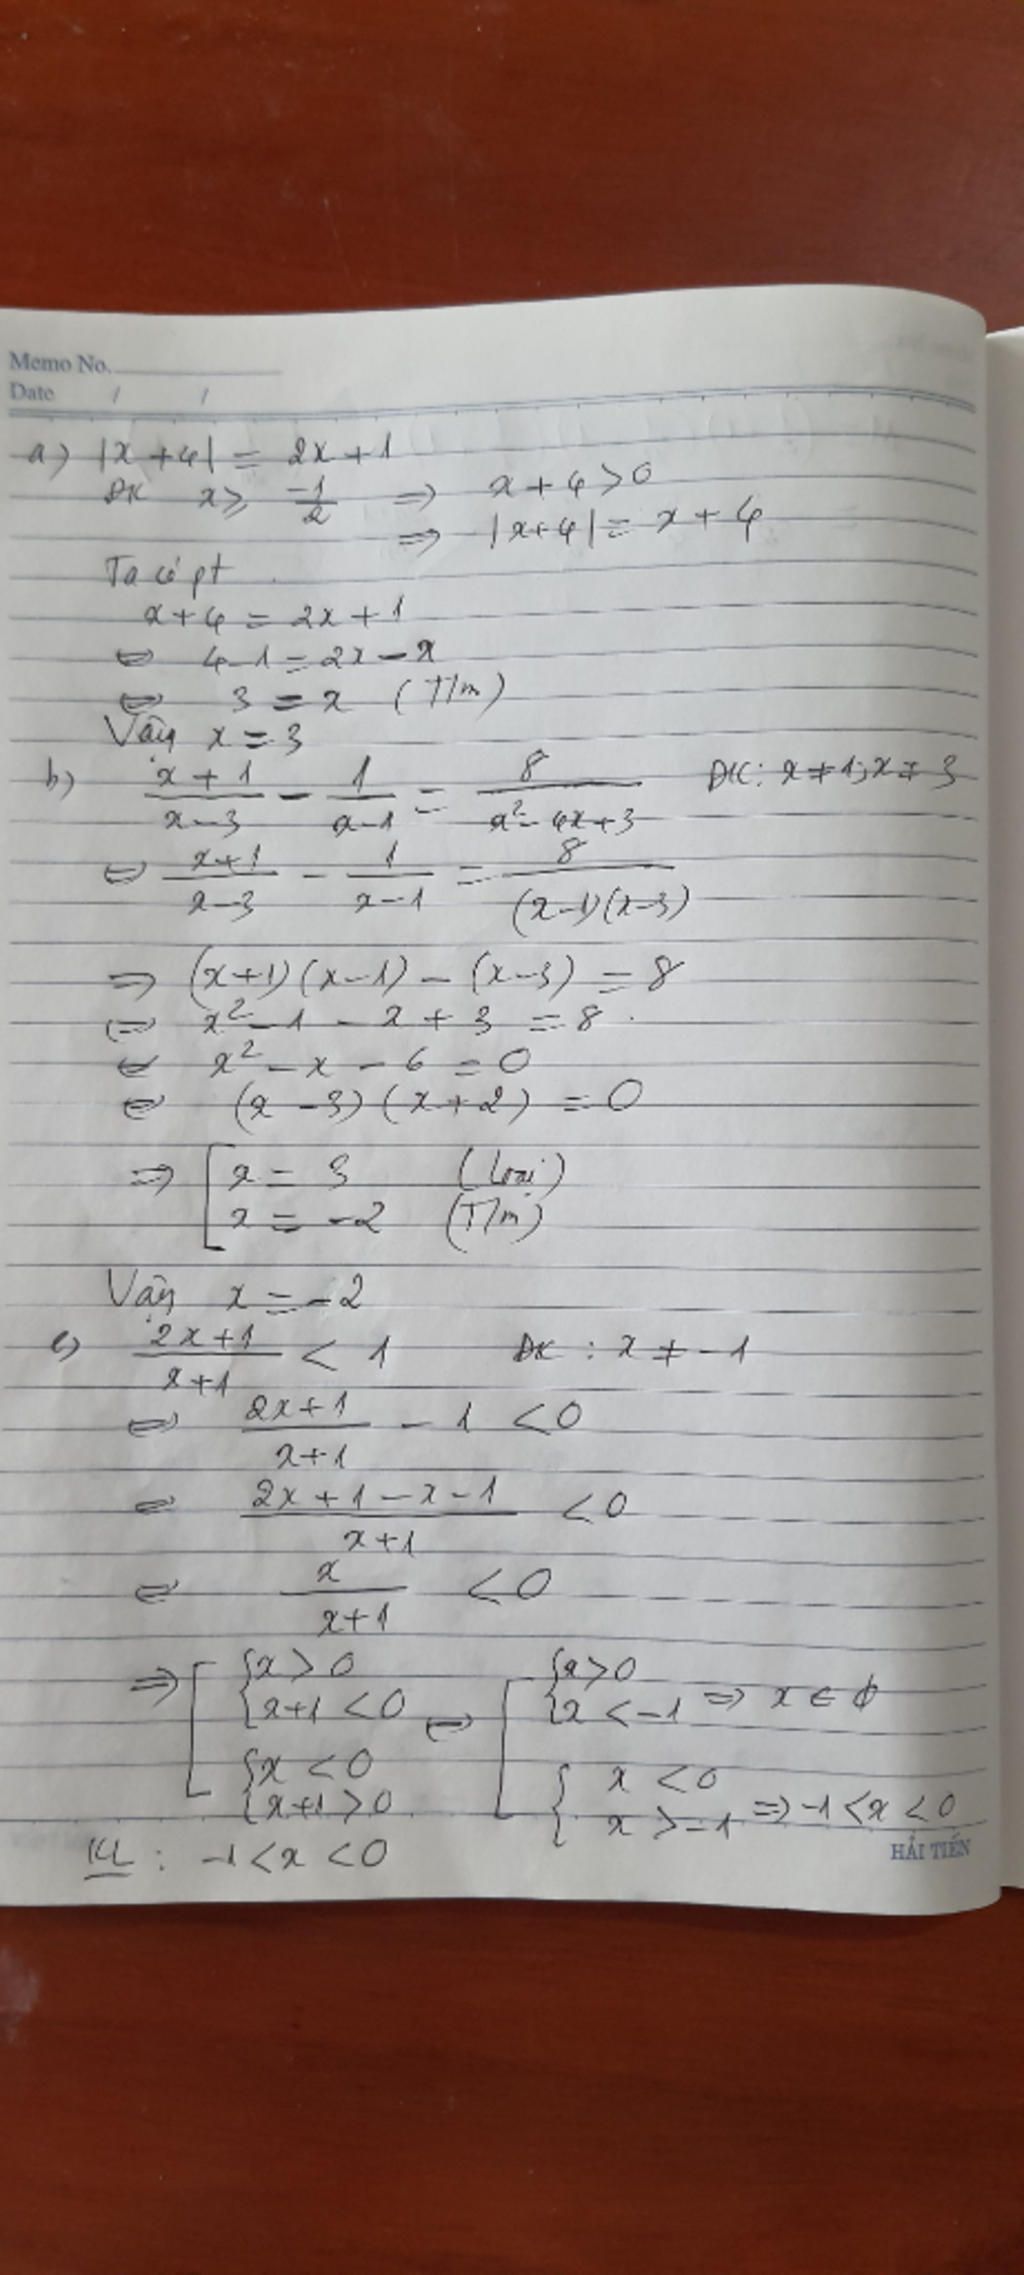 Memo No.
Date / /
a) |x + 4| = 2x + 1
ĐK x ≥ -1/2 ⇒ x + 4 > 0
⇒ |x+4| = x + 4
Ta có pt
x + 4 = 2x + 1
⇔ 4 - 1 = 2x - x
⇔ 3 = x (T/m)
Vậy x = 3
b) (x + 1)/(x - 3) - 1/(x - 1) = 8/(x² - 4x + 3) ĐK: x ≠ 1; x ≠ 3
⇔ (x+1)/(x-3) - 1/(x-1) = 8/((x-1)(x-3))
⇒ (x+1)(x-1) - (x-3) = 8
⇔ x² - 1 - x + 3 = 8
⇔ x² - x - 6 = 0
⇔ (x - 3)(x + 2) = 0
⇒ [ x = 3 (loại)
x = -2 (T/m)
Vậy x = -2
c) (2x+1)/(x+1) < 1 ĐK : x ≠ -1
⇔ (2x+1)/(x+1) - 1 < 0
⇔ (2x + 1 - x - 1)/(x+1) < 0
⇔ x/(x+1) < 0
⇒ [ { x > 0 [ { x > 0
{ x+1 < 0 ⇔ { x < -1 ⇒ x ∈ ϕ
{ x < 0 { x < 0
{ x+1 > 0 { x > -1 ⇒ -1 < x < 0
KL : -1 < x < 0
HẢI TIẾN